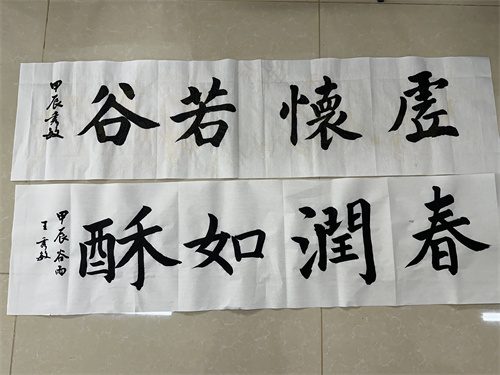 虛懷若谷
甲辰秀敏
春潤如酥
甲辰谷雨
王秀敏